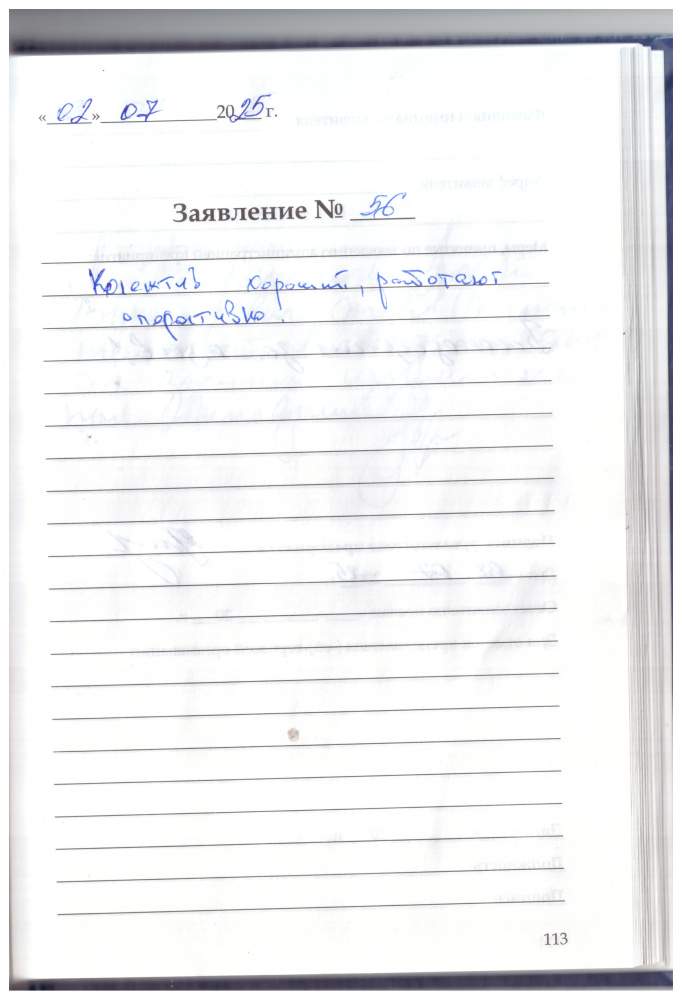 «02» 07 2025 г.
Заявление № 56
Колектив хороший, работают
оперативно.
113